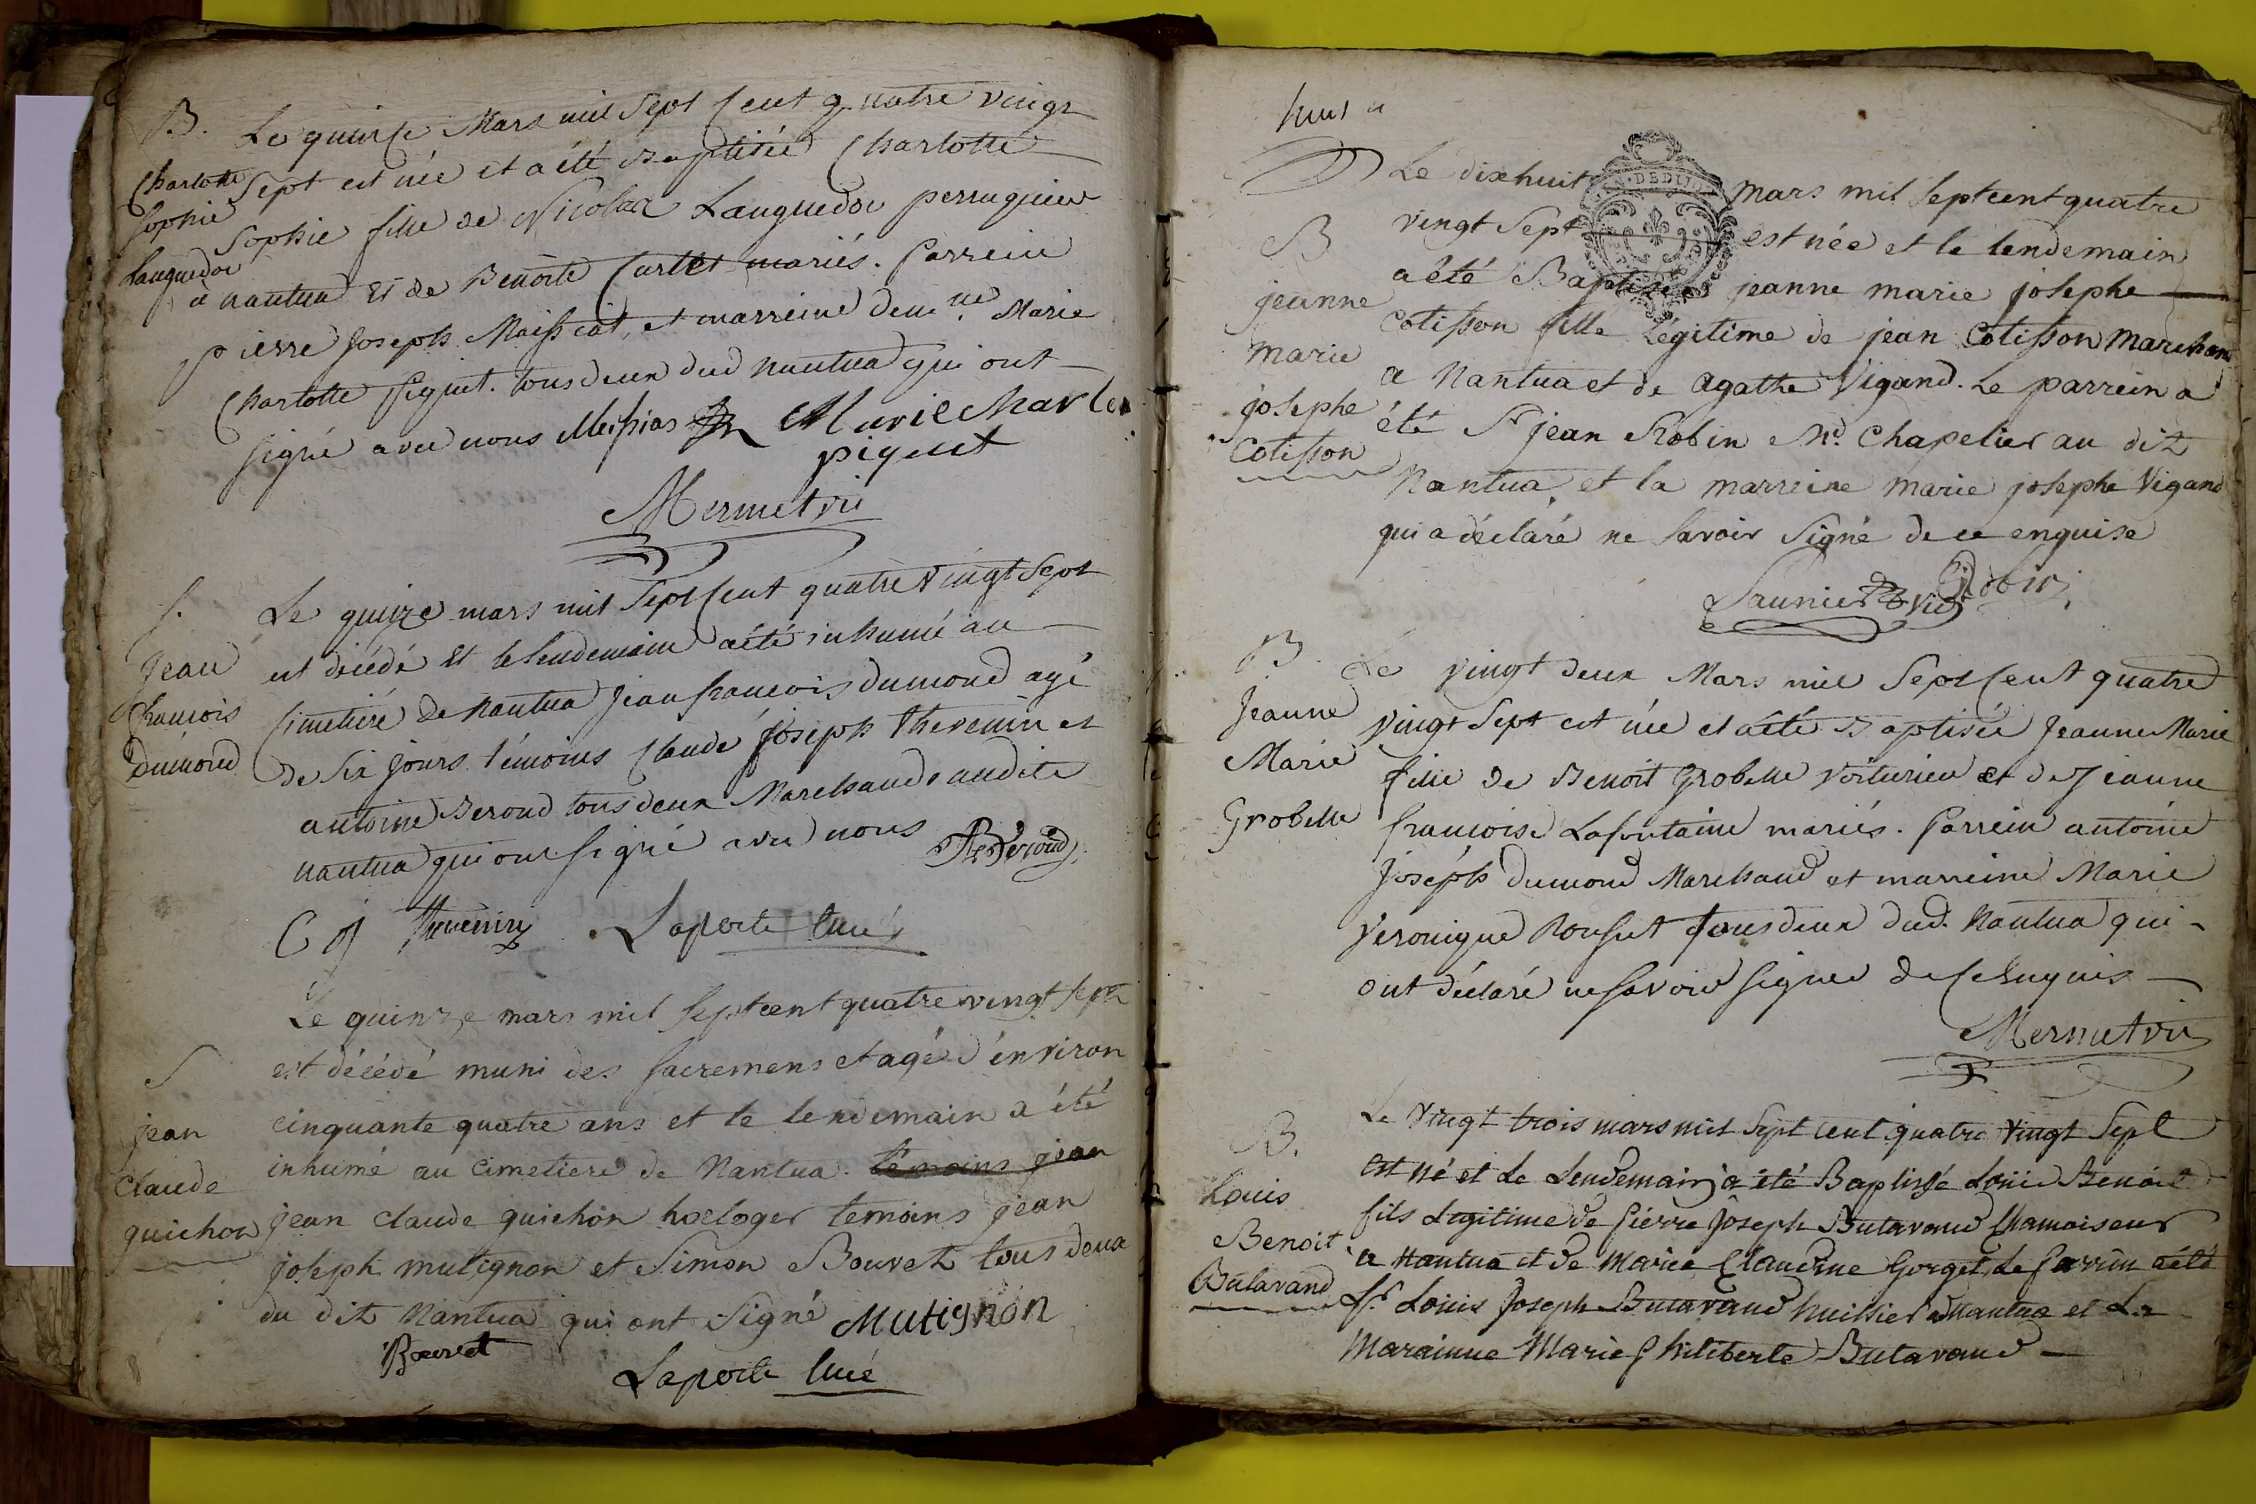 B.
Charlotte
Sophie
Languedoc
Le quinse Mars mil Sept Cent quatre vingt
Sept est née et a été Baptisée Charlotte
Sophie fille de Nicolas Languedoc perruquier
à nantua et de Benoite Curtet mariés. Parrein
pierre Joseph Maissiat, et marreine dem.lle Marie
Charlotte piquet. tous deux dud nantua qui ont
signé avec nous Meissias Marie charlo
piquet
Mermet vic
S.
Jean
francois
dumond
Le quinze mars mil Sept Cent quatre Vingt Sept
est décédé et le lendemain a été inhumé au
Cimetiere de nantua Jean francois dumond agé
de six jours. témoins Claude Joseph thevenin et
antoine Beroud tous deux Marchands audite
nantua qui ont signé avec nous
Beroud
C J thevenin Laporte curé
S
jean
claude
guichon
Le quinze mars mil sept cent quatre vingt sept
est décédé muni des sacremens et agé d'environ
cinquante quatre ans et le lendemain a été
inhumé au cimetiere de Nantua. témoins jean
jean claude guichon horloger temoins jean
joseph mutignon et Simon Bouvet tous deux
du dit Nantua qui ont signé Mutignon
Bouvet
Laporte curé
huit
B
jeanne
marie
josephe
Cotisson
Le dixhuit mars mil sept cent quatre
vingt Sept est née et le lendemain
a été Baptisée jeanne marie josephe
Cotisson fille légitime de jean Cotisson Marchand
a Nantua et de agathe Vigand. Le parrein a
été Sr jean Robin Md. chapelier au dit
Nantua, et la marreine marie josephe Vigand
qui a déclaré ne savoir signé de ce enquise
Saunier vic Robin
B
Jeanne
Marie
Grobelle
Le vingt deux Mars mil Sept Cent quatre
Vingt Sept est née et a été Baptisée Jeanne Marie
fille de Benoit Grobelle Voiturier et de Jeanne
francoise Lafontaine mariés. Parrein antoine
Joseph dumond Marchand et marreine Marie
Veronique Rousset tous deux dud. Nantua qui
ont déclaré ne savoir signer de ce Enquis
Mermet vic
B.
Louis
Benoit
Butavand
Le Vingt trois mars mil Sept cent quatre vingt Sept
est né et Le Lendemain a été Baptissé Louis Benoit
fils Legitime de Pierre Joseph Butavand Chamoiseur
a Nantua et de Marie Claudine Gorget, Le Parrin a été
Sr. Louis Joseph Butavand huissier a Nantua et La
Marainne Marie Philiberte Butavand